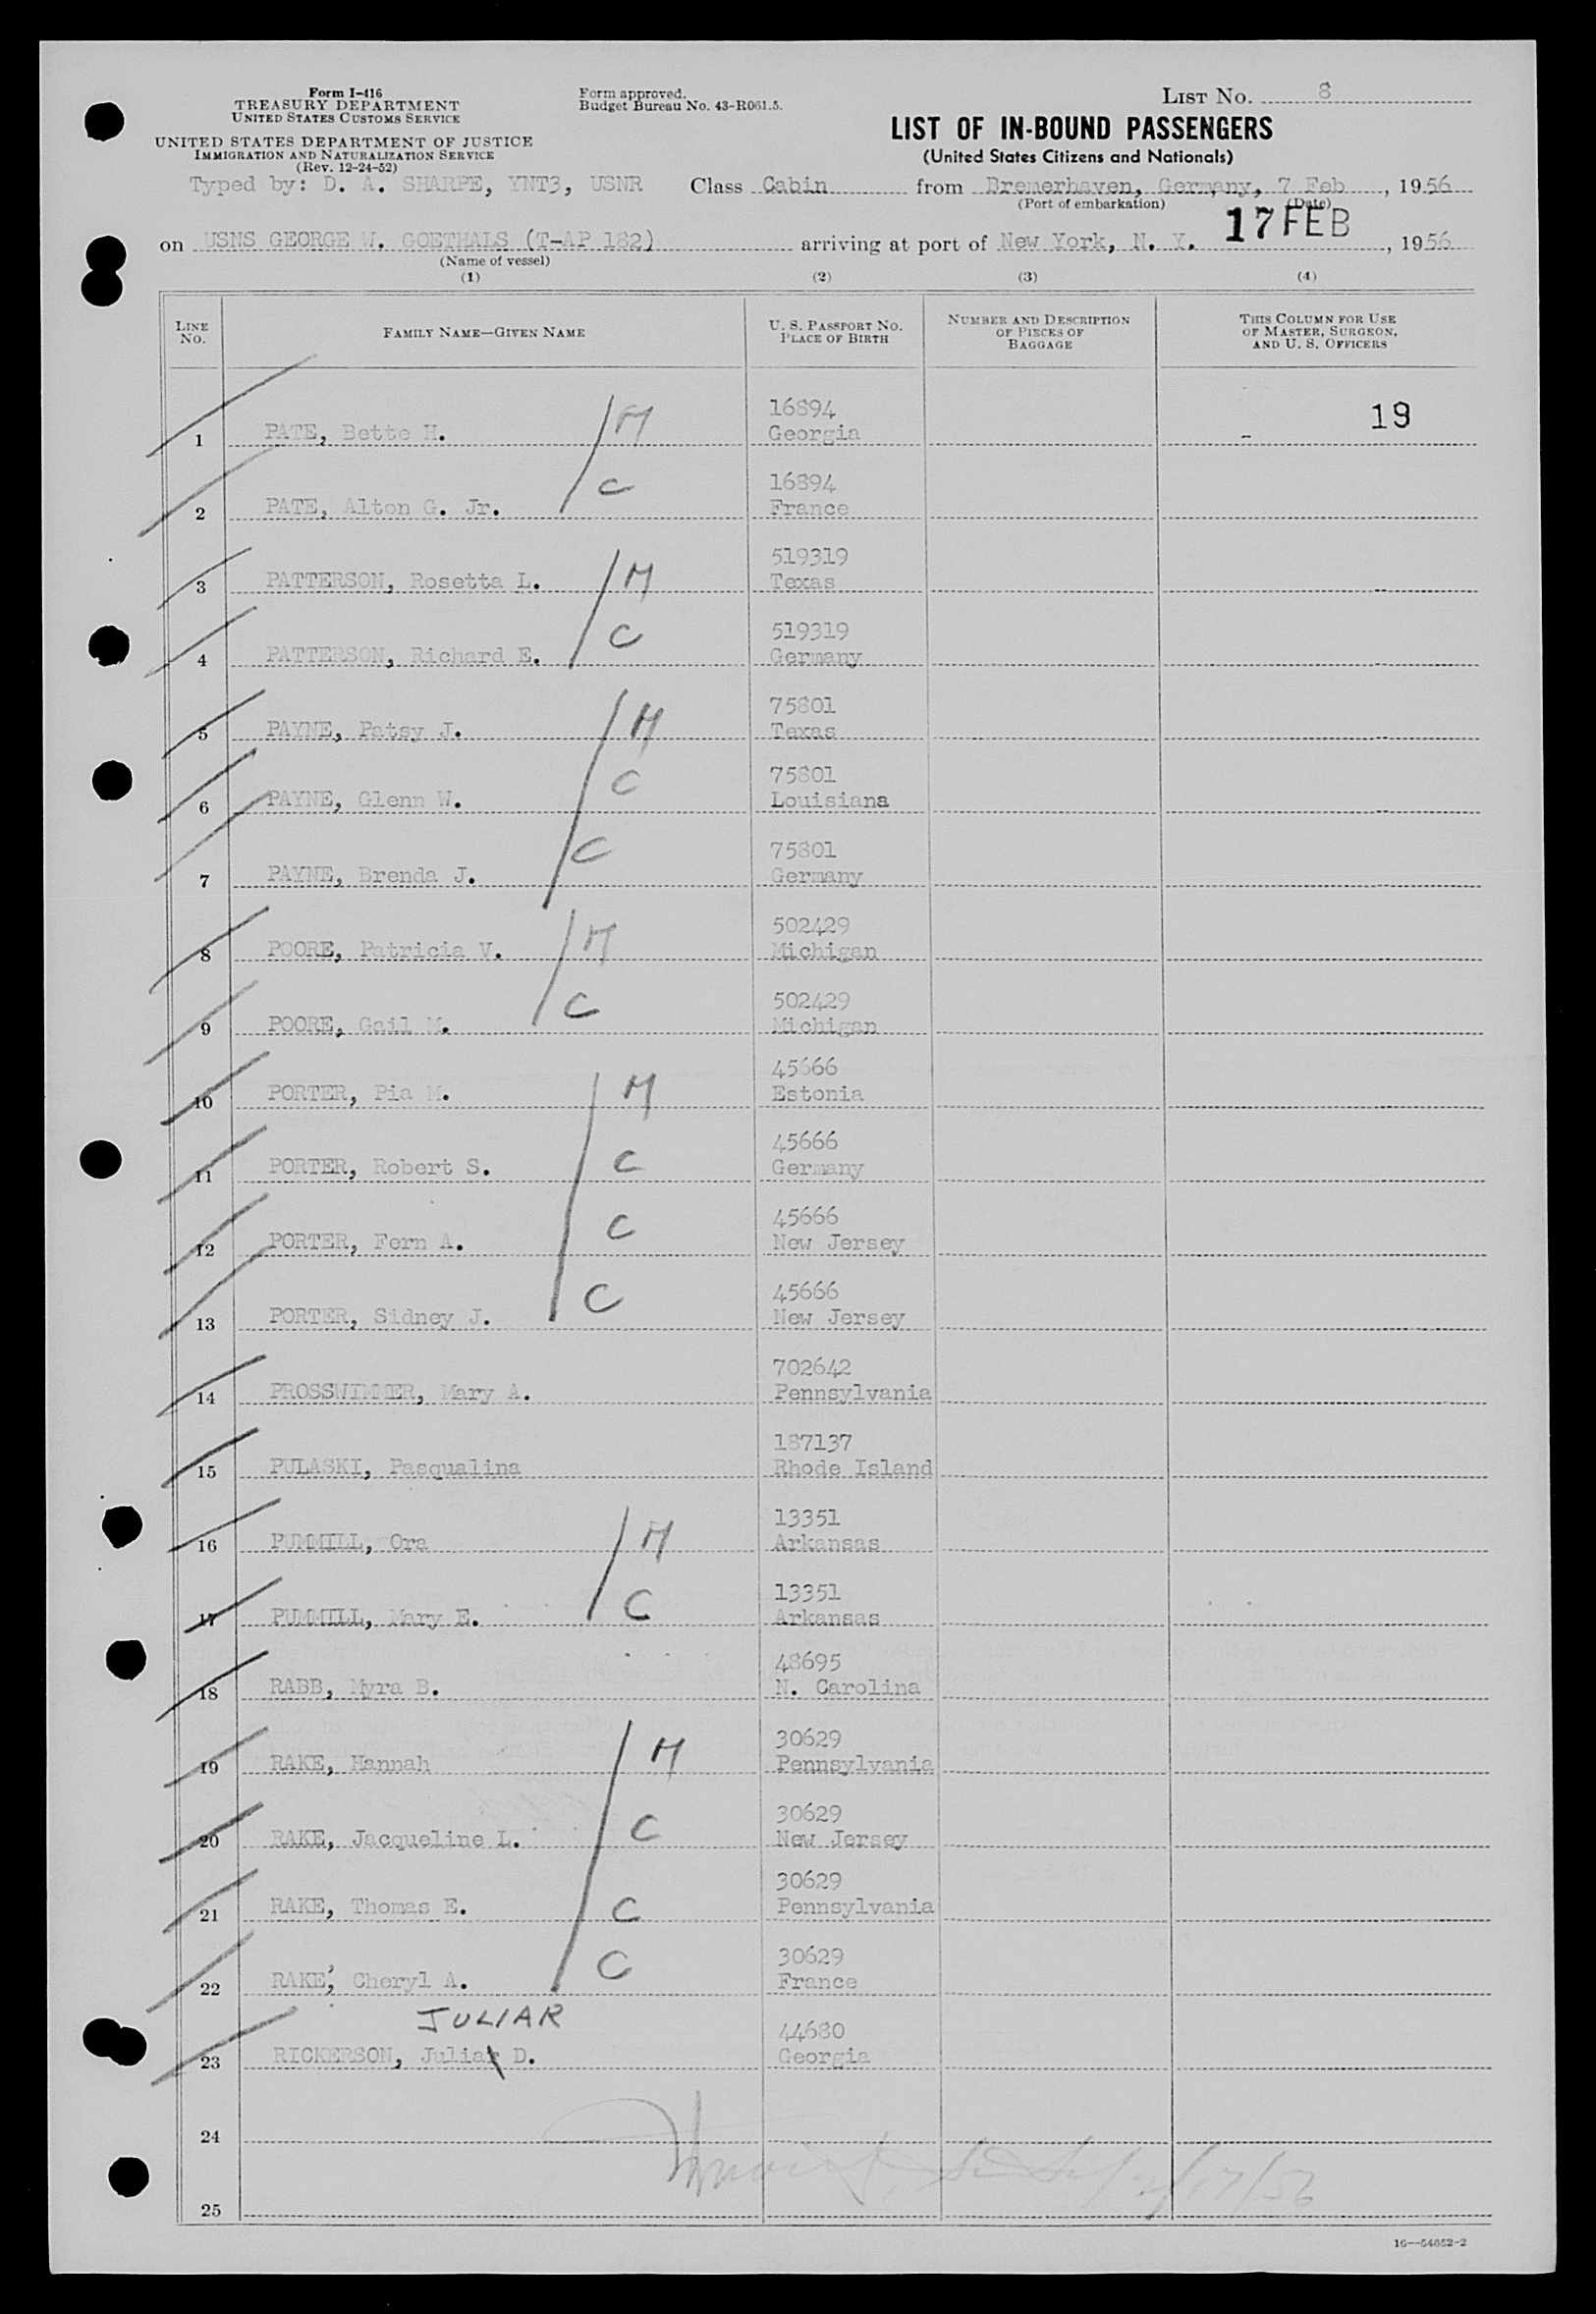 Form I-416
TREASURY DEPARTMENT
UNITED STATES CUSTOMS SERVICE
UNITED STATES DEPARTMENT OF JUSTICE
IMMIGRATION AND NATURALIZATION SERVICE
(Rev. 12-24-52)
Form approved.
Budget Bureau No. 43-R061.5.
LIST NO. 8
LIST OF IN-BOUND PASSENGERS
(United States Citizens and Nationals)
Typed by: D. A. SHARPE, YNT3, USNR Class Cabin from Bremerhaven, Germany, 7 Feb, 1956
(Port of embarkation) (Date)
on USNS GEORGE W. GOETHALS (T-AP 182) arriving at port of New York, N. Y. 17 FEB, 1956
(Name of vessel)
(1) (2) (3) (4)
LINE NO. FAMILY NAME—GIVEN NAME U. S. PASSPORT NO. PLACE OF BIRTH NUMBER AND DESCRIPTION OF PIECES OF BAGGAGE THIS COLUMN FOR USE OF MASTER, SURGEON, AND U. S. OFFICERS
16894 19
1 PATE, Bette H. M Georgia
16894
2 PATE, Alton G. Jr. C France
519319
3 PATTERSON, Rosetta L. M Texas
519319
4 PATTERSON, Richard E. C Germany
75801
5 PAYNE, Patsy J. M Texas
75801
6 PAYNE, Glenn W. C Louisiana
75801
7 PAYNE, Brenda J. C Germany
502429
8 POORE, Patricia V. M Michigan
502429
9 POORE, Gail M. C Michigan
45666
10 PORTER, Pia M. M Estonia
45666
11 PORTER, Robert S. C Germany
45666
12 PORTER, Fern A. C New Jersey
45666
13 PORTER, Sidney J. C New Jersey
702642
14 PROSSWIMMER, Mary A. Pennsylvania
187137
15 PULASKI, Pasqualina Rhode Island
13351
16 PUMMILL, Ora M Arkansas
13351
17 PUMMILL, Mary E. C Arkansas
48695
18 RABB, Myra B. N. Carolina
30629
19 RAKE, Hannah M Pennsylvania
30629
20 RAKE, Jacqueline L. C New Jersey
30629
21 RAKE, Thomas E. C Pennsylvania
30629
22 RAKE, Cheryl A. C France
JULIAR
44680
23 RICKERSON, Julia D. Georgia
24
2/17/56
25
16—54652-2